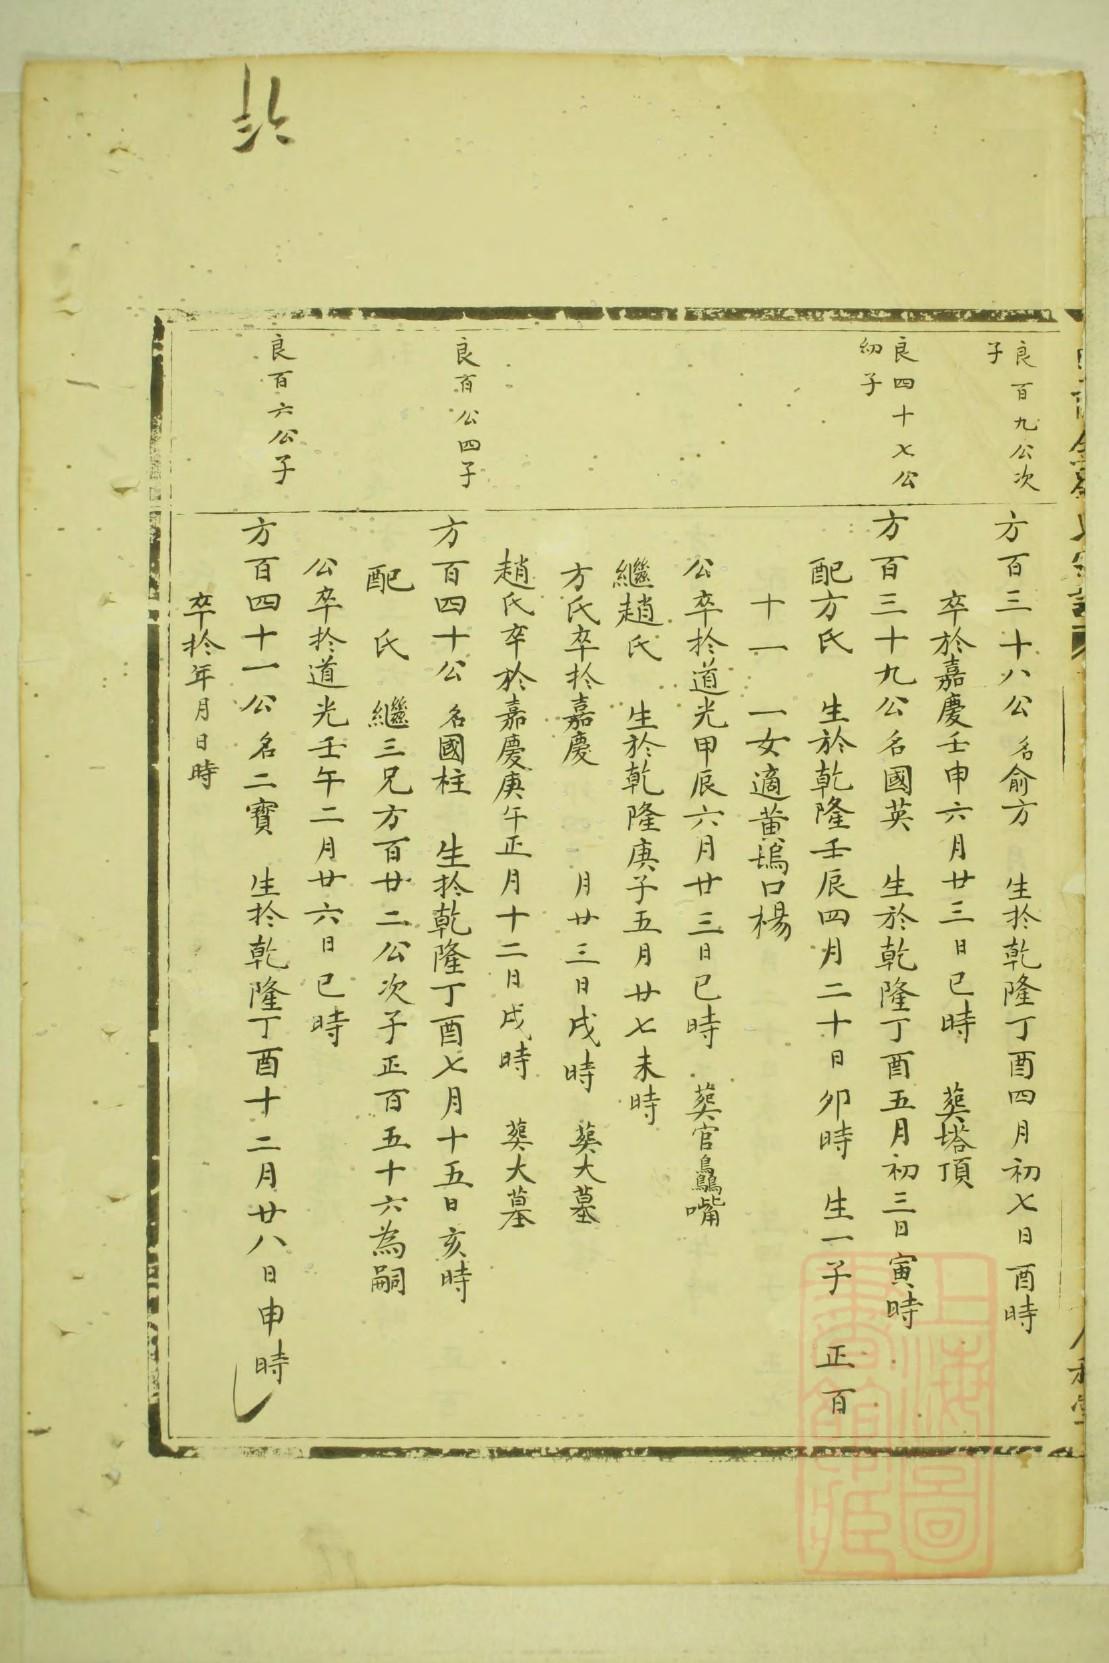 良百九公次
子
方百三十八公名俞方 生扵乾隆丁酉四月初七日酉時
卒於嘉慶壬申六月廿三日巳時 葬塔頂
良四十七公
幼子
方百三十九公名國英 生於乾隆丁酉五月初三日寅時
配方氏 生於乾隆壬辰四月二十日卯時 生一子 正百
十一 一女適黄塢口楊
公卒扵道光甲辰六月廿三日巳時 葬官鸕嘴
繼趙氏 生於乾隆庚子五月廿七未時
方氏卒扵嘉慶 月廿三日戌時 葬大墓
趙氏卒於嘉慶庚午正月十二日戌時 葬大墓
良百公四子
方百四十公 名國柱 生扵乾隆丁酉七月十五日亥時
配 氏 繼三兄方百廿二公次子正百五十六為嗣
公卒扵道光壬午二月廿六日巳時
良百六公子
方百四十一公名二寶 生扵乾隆丁酉十二月廿八日申時
卒扵年月日時
上海圖
書館藏